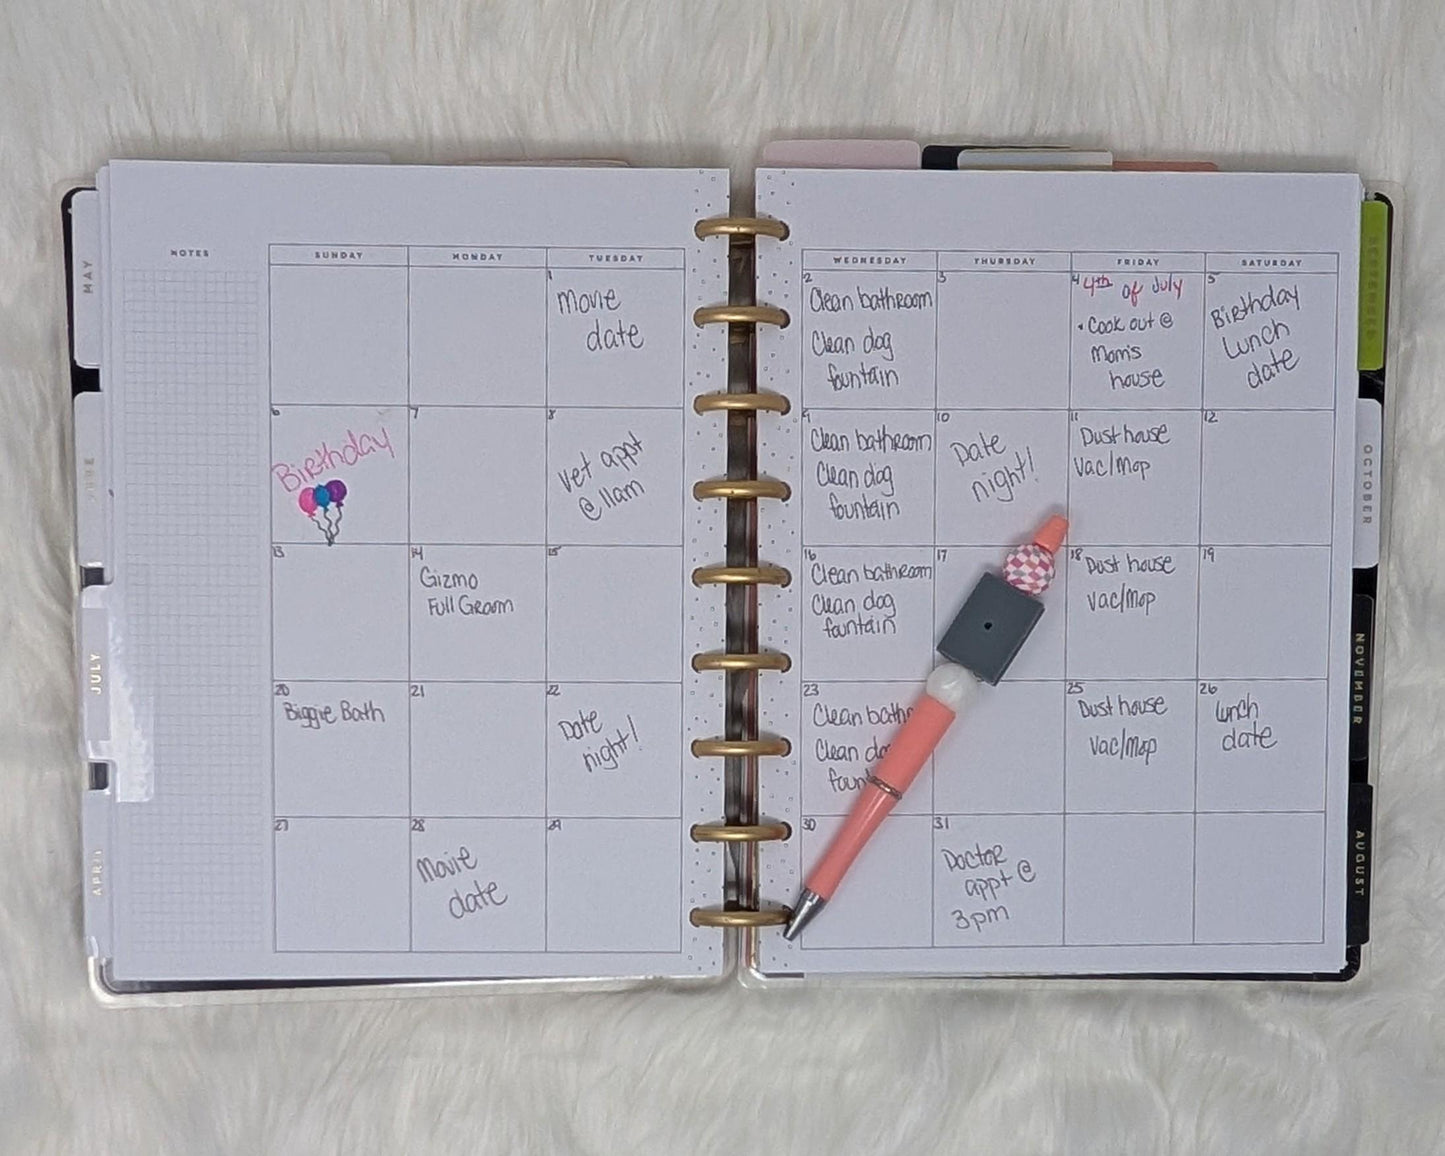 NOTES
SUNDAY
MONDAY
TUESDAY
WEDNESDAY
THURSDAY
FRIDAY
SATURDAY
1
Movie
date
2
Clean bathroom
Clean dog
fountain
3
4
4th of July
• Cook out @
Mom's
house
5
Birthday
Lunch
date
6
Birthday
7
8
Vet appt
@ 11am
9
Clean bathroom
Clean dog
fountain
10
Date
night!
11
Dust house
Vac/Mop
12
13
14
Gizmo
Full Groom
15
16
Clean bathroom
Clean dog
fountain
17
18
Dust house
Vac/Mop
19
20
Biggie Bath
21
22
Date
night!
23
Clean
Clean
25
Dust house
Vac/Mop
26
Lunch
date
27
28
Movie
date
29
30
31
Doctor
appt @
3pm
MAY
JUNE
JULY
APRIL
SEPTEMBER
OCTOBER
NOVEMBER
AUGUST